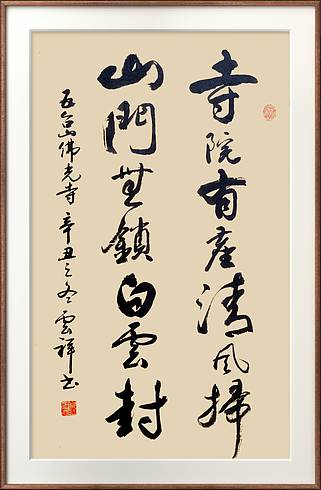 寺院有塵清風掃
山門無鎖白雲封
五台山佛光寺 辛丑之冬 雲祥书